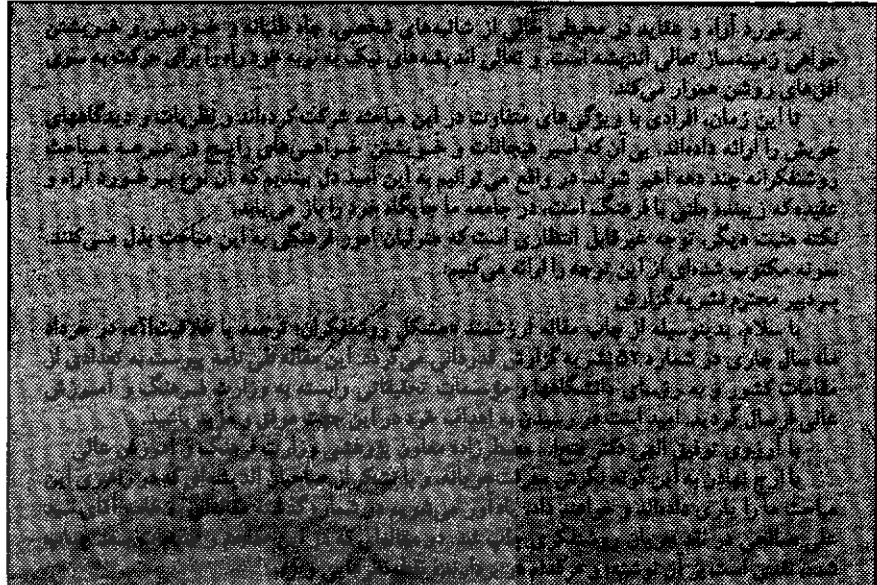 برخورد آراء و عقاید در محیطی خالی از شائبه‌های شخصی، جاه طلبانه و خودبینی و خویشتن
خواهی زمینه‌ساز تعالی اندیشه است و تعالی اندیشه‌های نیک به نوبه خود راه را برای حرکت به سوی
افق‌های روشن هموار می‌کند.
تا این زمان، افرادی با ویژگی‌های متفاوت در این مباحثه شرکت کرده‌اند و نظریات و دیدگاههای
خویش را ارائه داده‌اند، بی آن که اسیر هیجانات و خویشتن خواهی‌های رایج در عرصه مباحث
روشنفکرانه چند دهه اخیر شوند. در واقع می‌توانیم به این امید دل ببندیم که آن نوع برخورد آراء و
عقیده که زیبنده ملتی با فرهنگ است، در جامعه ما جایگاه خود را باز می‌یابد.
نکته مثبت دیگر، توجه غیرقابل انتظاری است که متولیان امور فرهنگی به این مباحث بذل می‌کنند.
نمونه مکتوب شده‌ای از این توجه را ارائه می‌کنیم:
سردبیر محترم نشریه گزارش
با سلام، بدینوسیله از چاپ مقاله ارزشمند «مشکل روشنفکران؛ ترجمه یا خلاقیت؟»، در خرداد
ماه سال جاری در شماره ۵۲ نشریه گزارش قدردانی می‌گردد. این مقاله طی نامه پیوست به تعدادی از
مقامات کشور و به روسای دانشگاهها و مؤسسات تحقیقاتی وابسته به وزارت فرهنگ و آموزش
عالی ارسال گردید. امید است در رسیدن به اهداف خود در این جهت موفق و
با آرزوی توفیق الهی دکتر معاون پژوهشی وزارت فرهنگ و آموزش عالی
با ارج نهادن به این گونه نگرش و با تشکر از صاحبان اندیشه‌ای که در این
مباحث ما را یاری داده‌اند و خواهند داد، یادآور می‌شویم در شماره گذشته مقاله‌ای آقای سید
علی صالحی